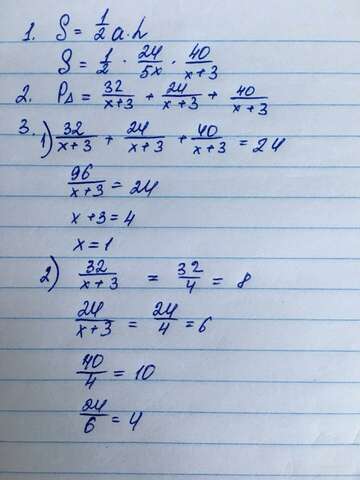 1. S = 1/2 a · h
S = 1/2 · 24/5x · 40/x+3
2. P△ = 32/x+3 + 24/x+3 + 40/x+3
3. 1) 32/x+3 + 24/x+3 + 40/x+3 = 24
96/x+3 = 24
x+3 = 4
x = 1
2) 32/x+3 = 32/4 = 8
24/x+3 = 24/4 = 6
40/4 = 10
24/6 = 4